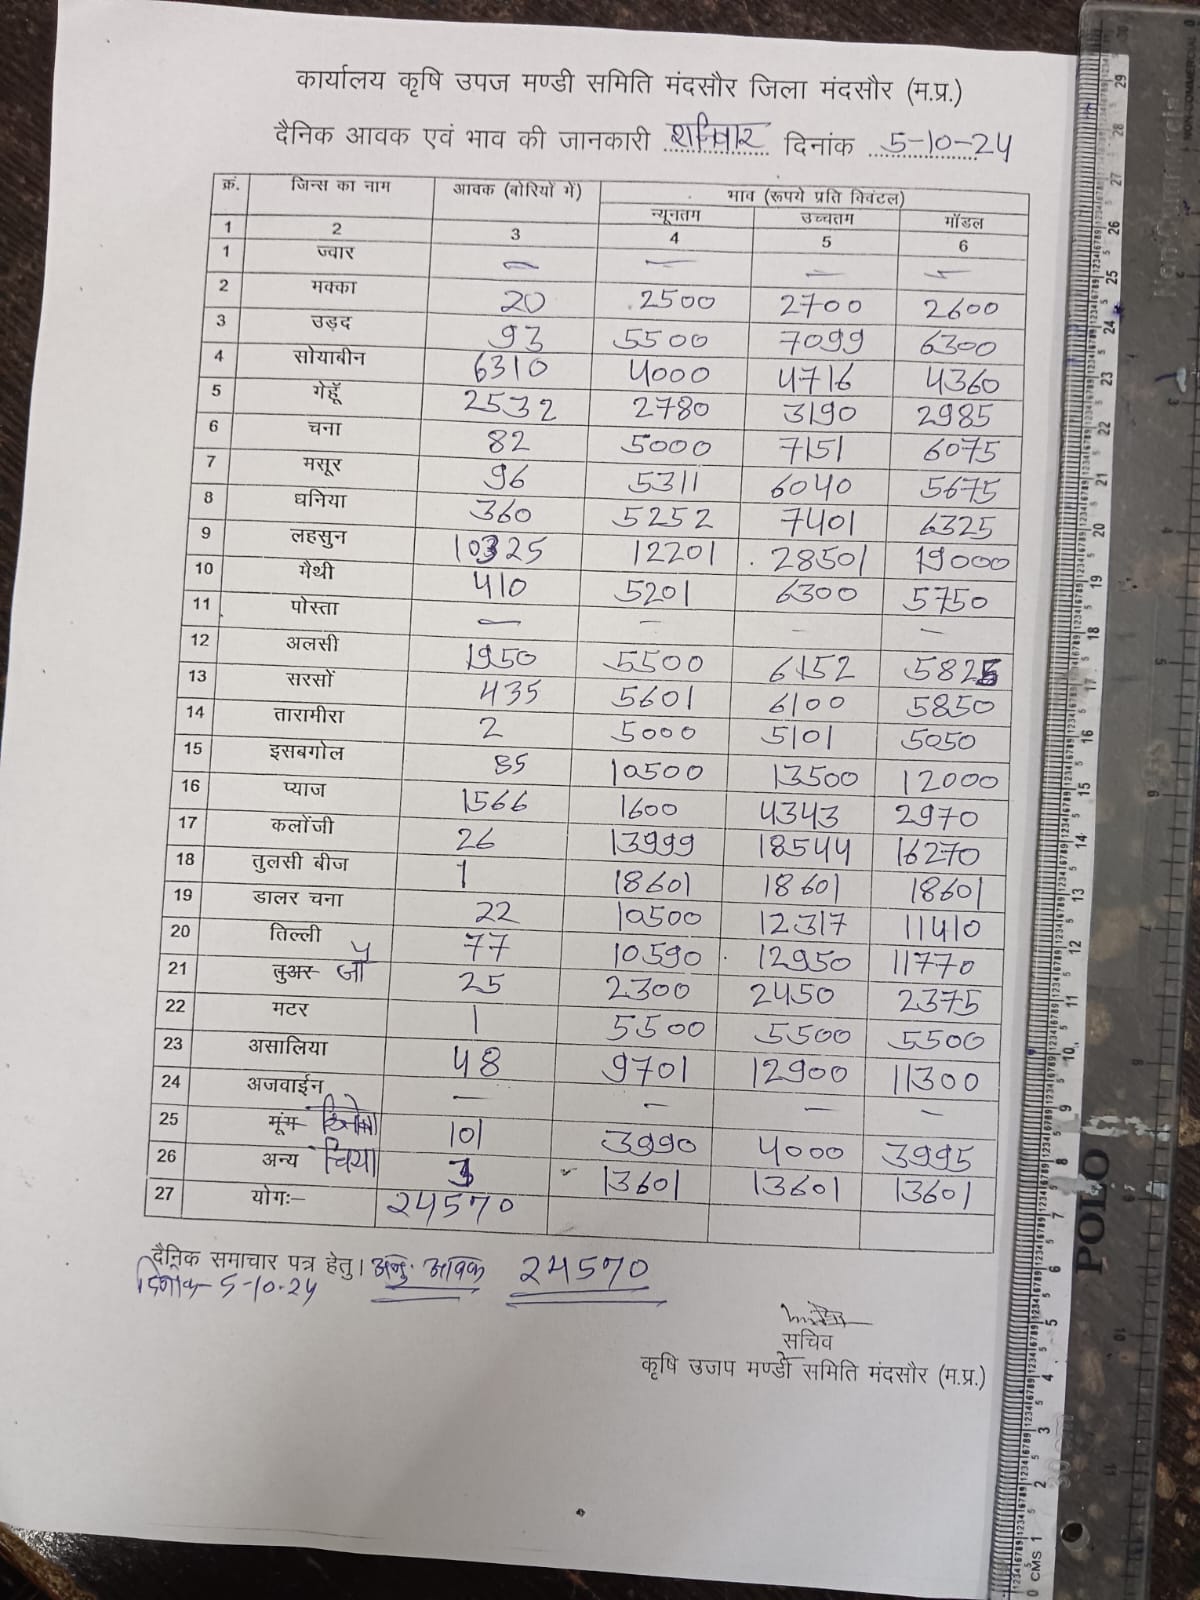 कार्यालय कृषि उपज मण्डी समिति मंदसौर जिला मंदसौर (म.प्र.)
दैनिक आवक एवं भाव की जानकारी शनिवार दिनांक 5-10-24
क्रं. जिन्स का नाम आवक (बोरियों में) भाव (रूपये प्रति क्विंटल)
न्यूनतम उच्चतम मॉडल
1 2 3 4 5 6
1 ज्वार — — — —
2 मक्का 20 2500 2700 2600
3 उड़द 93 5500 7099 6300
4 सोयाबीन 6310 4000 4716 4360
5 गेहूॅ 2532 2780 3190 2985
6 चना 82 5000 7151 6075
7 मसूर 96 5311 6040 5675
8 धनिया 360 5252 7401 6325
9 लहसुन 10325 12201 28501 19000
10 मैथी 410 5201 6300 5750
11 पोस्ता — — — —
12 अलसी 1950 5500 6152 5825
13 सरसों 435 5601 6100 5850
14 तारामीरा 2 5000 5101 5050
15 इसबगोल 85 10500 13500 12000
16 प्याज 1566 1600 4343 2970
17 कलोंजी 26 13999 18544 16270
18 तुलसी बीज 1 18601 18601 18601
19 डालर चना 22 10500 12317 11410
20 तिल्ली 77 10590 12950 11770
21 तुअर जौ 25 2300 2450 2375
22 मटर 1 5500 5500 5500
23 असालिया 48 9701 12900 11300
24 अजवाईन — — — —
25 मूंग 101 3990 4000 3995
26 अन्य चिया 1 13601 13601 13601
27 योगः— 24570
दैनिक समाचार पत्र हेतु। अनु. आवक 24570
दिनांक-5-10-24
सचिव
कृषि उजप मण्डी समिति मंदसौर (म.प्र.)
POLO
0 CMS 1 2 3 4 5 6 7 8 9 10 11 12 13 14 15 16 17 18 19 20 21 22 23 24 25 26 27 28 29